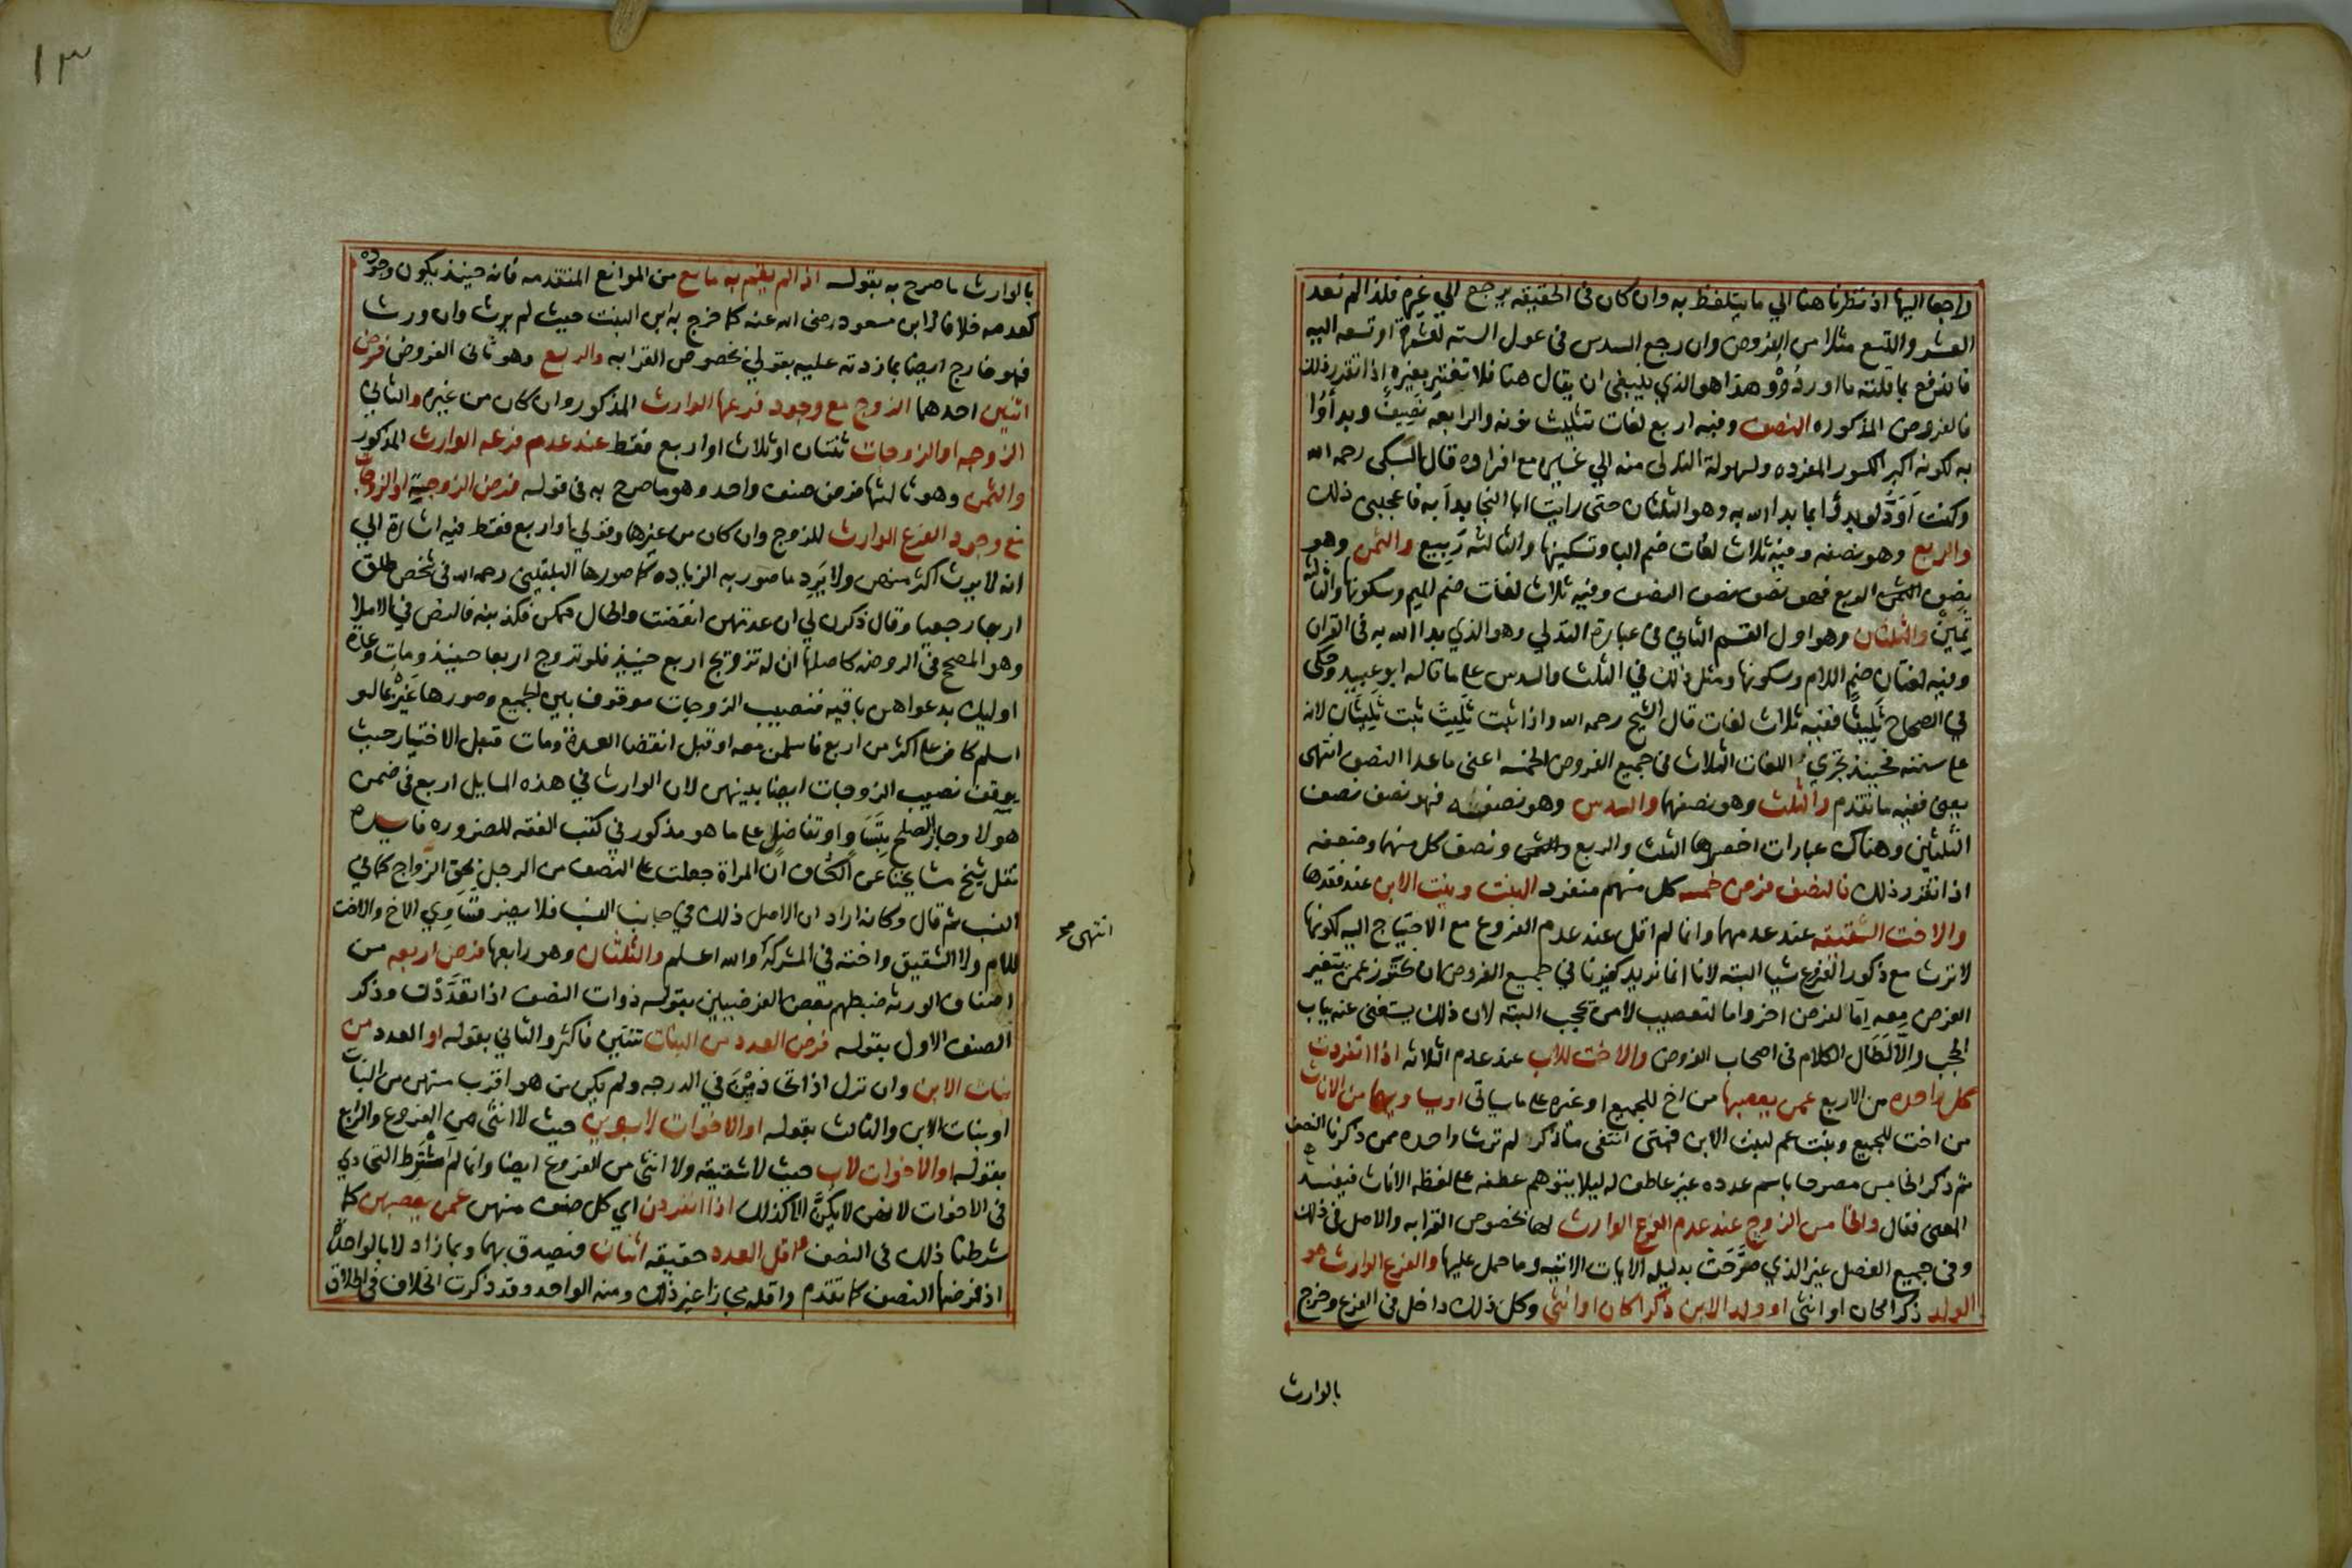 راجعا اليها اذ نظرنا هنا الي ما يتلفظ به وان كان في الحقيقه يرجع الي غيره فلذا لم نعد
العشر والتسع مثلا من الفروض وان رجع السدس في عول السته لعشرها او تسعه اليه
فاندفع بما قلته ما اوردوه وهذا هو الذي ينبغي ان يقال هنا فلا تغتر بغيره اذا تقرر ذلك
فالفروض المذكوره النصف وفيه اربع لغات تثليث نونه والرابعه نصيف وبداوا
به لكونه اكبر الكسور المفرده ولسهولة التدلى منه الي غيره مع افراده قال السبكى رحمه الله
وكنت اود لو بدوا بما بدا الله به وهو الثلثان حتى رايت ابا النجا بدا به فاعجبني ذلك
والربع وهو نصفه وفيه ثلاث لغات ضم البا وتسكينها والثالثه ربيع والثمن وهو
نصف الربع فهو نصف نصف النصف وفيه ثلاث لغات ضم الميم وسكونها والثالثه
ثمين والثلثان وهو اول القسم الثاني في عبارة التدلي وهو الذي بدا الله به في القران
وفيه لغتان ضم اللام وسكونها ومثل ذلك في الثلث والسدس على ما قاله ابو عبيد وحكى
في الصحاح ثليثا ففيه ثلاث لغات قال الشيخ رحمه الله واذا ثبت ثليث ثبت ثليثان لانه
على سننه فحينيذ تجري اللغات الثلاث في جميع الفروض الخمسه اعنى ما عدا النصف انتهى
يعني ففيه ما تقدم والثلث وهو نصفهما والسدس وهو نصفه فهو نصف نصف
الثلثين وهناك عبارات اخصرها الثلث والربع ونصف كل منهما وضعفه
اذا تقرر ذلك فالنصف فرض خمسه كل منهم منفرد البنت وبنت الابن عند فقدها
والاخت الشقيقه عند عدمهما وانما لم اقل عند عدم الفروع مع الاحتياج اليه لكونها
لا ترث مع ذكور الفروع شيا البته لانا انما نريد كغيرنا في جميع الفروض ان نحترز عمن يتغير
الفرض معه اما لفرض اخر واما لتعصيب لا من تحجب البته لان ذلك يستغنى عنه بباب
الحجب والا لطال الكلام في اصحاب الفروض والاخت للاب عند عدم الثلاثه اذا انفردت
كل واحده من الاربع عمن يعصبها من اخ للجميع او غيره على ما سياتي او يساويها من الاناث
من اخت للجميع وبنت عم لبنت الابن فمتى انتفى ما ذكر لم ترث واحده ممن ذكرنا النصف
ثم ذكر الخامس مصرحا باسم عدده غير عاطف له ليلا يتوهم عطفه على لفظه الاناث فيفسد
المعنى فقال والخامس الزوج عند عدم الفرع الوارث لها بخصوص القرابه والاصل في ذلك
وفي جميع الفصل غير الذي صرحت بدليله الايات الاتيه وما حمل عليها والفرع الوارث هو
الولد ذكرا كان او انثى او ولد الابن ذكرا كان او انثى وكل ذلك داخل في الفرع وخرج
بالوارث
١٣
بالوارث ما صرح به بقوله اذا لم يقم به مانع من الموانع المتقدمه فانه حينيذ يكون وجوده
كعدمه خلافا لابن مسعود رضى الله عنه كما خرج به ابن البنت حيث لم يرث وان ورث
فهو خارج ايضا بما زدته عليه بقولي بخصوص القرابه والربع وهو ثانى الفروض فرض
اثنين احدهما الزوج مع وجود فرعها الوارث المذكور وان كان من غيره والثاني
الزوجه او الزوجات ثنتان او ثلاث او اربع فقط عند عدم فرعه الوارث المذكور
والثمن وهو ثالثها فرض صنف واحد وهو ما صرح به في قوله فرض الزوجية او الزوجات
مع وجود الفرع الوارث للزوج وان كان من غيرها وقولي او اربع فقط فيه اشارة الي
انه لا يرث اكثر منهن ولا يرد ما صور به الزياده كما صورها البلقيني رحمه الله في شخص طلق
اربعا رجعيا وقال ذكرن لي ان عدتهن انقضت والحال ممكن فكذبنه فالنص في الاملا
وهو المصحح في الروضه كاصلها ان له تزويج اربع حينيذ فلو تزوج اربعا حينيذ ومات وعدة
اوليك بدعواهن باقيه فنصيب الزوجات موقوف بين الجميع وصورها غيره بما لو
اسلم كافر على اكثر من اربع فاسلمن معه او قبل انقضا العدة ومات قبل الاختيار حيث
يوقف نصيب الزوجات ايضا بينهن لان الوارث في هذه المسايل اربع في ضمن
هولا وجاز الصلح بتساو او تفاضل على ما هو مذكور في كتب الفقه للضروره فايده
نقل شيخ مشايخنا عن الكشاف ان المراة جعلت على النصف من الرجل بحق الزواج كما في
النسب ثم قال وكانه اراد ان الاصل ذلك في جانب النسب فلا يضر تساوي الاخ والاخت
للام ولا الشقيق واخته في المشركة والله اعلم والثلثان وهو رابعها فرض اربعه من
اصناف الورثه ضبطهم بعض الفرضيين بقوله ذوات النصف اذا تعددت وذكر
الصنف الاول بقوله فرض العدد من البنات ثنتين فاكثر والثاني بقوله او العدد من
بنات الابن وان نزل اذا تحاذين في الدرجه ولم يكن من هو اقرب منهن من البنات
او بنات الابن والثالث بقوله او الاخوات لابوين حيث لا انثى من الفروع والرابع
بقوله او الاخوات لاب حيث لا شقيقه ولا انثى من الفروع ايضا وانما لم اشترط التحاذي
في الاخوات لانهن لا يكن الا كذلك اذا انفردن اي كل صنف منهن عمن يعصبهن كما
شرطنا ذلك في النصف اقل العدد حقيقه اثنان فيصدق بهما وبما زاد لا بالواحدة
اذ فرضها النصف كما تقدم واقله مجازا غير ذلك ومنه الواحد وقد ذكرت الخلاف في اطلاق
انتهى